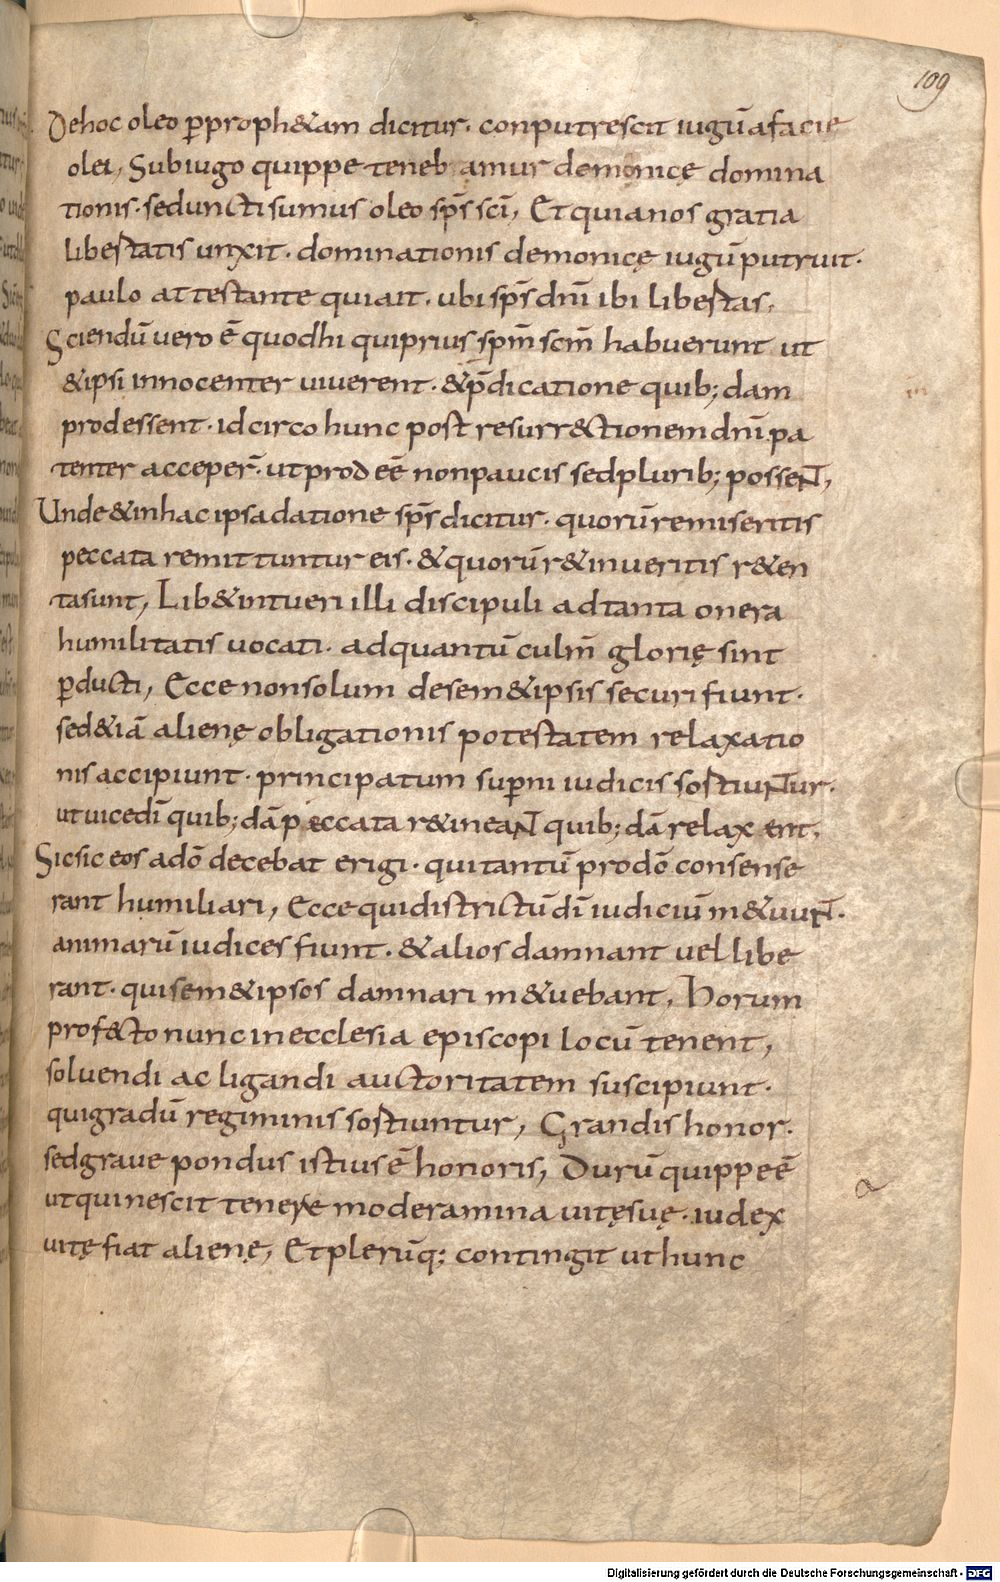 109
De hoc oleo ꝑ proph&am dicitur · conputrescit iugū a facie
olei, Sub iugo quippe tenebamur demonicę domina
tionis · sed uncti sumus oleo sp̄s sc̄i, Et quia nos gratia
libertatis unxit · dominationis demonicę iugū putruit ·
paulo attestante qui ait · ubi sp̄s dn̄i ibi libertas,
Sciendū vero ē quod hi qui prius sp̄m sc̄m habuerunt ut
& ipsi innocenter viverent · & p̄dicatione quib; dam
prodessent · idcirco hunc post resurr&ctionem dn̄i pa
tenter acceper̄ · ut prodeē non paucis sed plurib; posseNT,
Unde & in hac ipsa datione sp̄s dicitur · quorū remiseritis
peccata remittuntur eis · & quorū r&inveritis r&en
ta sunt, Lib& intueri illi discipuli ad tanta onera
humilitatis vocati · ad quantū culm̄ glorię sint
ꝑducti, Ecce non solum de sem&ipsis securi fiunt ·
sed &iā alienę obligationis potestatem relaxatio
nis accipiunt · principatum suꝑni iudicis sortiuNTur ·
ut vice dī quib; dā peccata r&ineaNT quib; dā relaxent,
Sic sic eos a dō decebat erigi · qui tantū pro dō consense
rant humiliari, Ecce qui districtū dī iudiciū m&uuNT ·
animarū iudices fiunt · & alios damnant vel libe
rant · qui sem&ipsos damnari m&uebant, Horum
prof&cto nunc in ecclesia episcopi locū tenent,
solvendi ac ligandi auctoritatem suscipiunt ·
qui gradū regiminis sortiuntur, Grandis honor ·
sed grave pondus istius ē honoris, Durū quippe ē
ut qui nescit tenere moderamina vitę suę · iudex
vitę fiat alienę, Et plerūq; contingit ut hunc
Digitalisierung gefördert durch die Deutsche Forschungsgemeinschaft - DFG